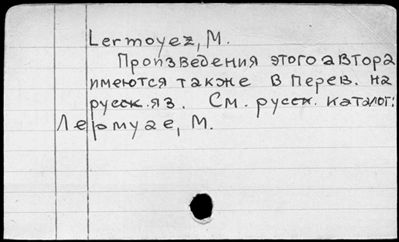 Lermoyez, M.
Произведения этого автора
имеются также в перев. на
русск. яз. См. русск. каталог:
Лермуае, М.